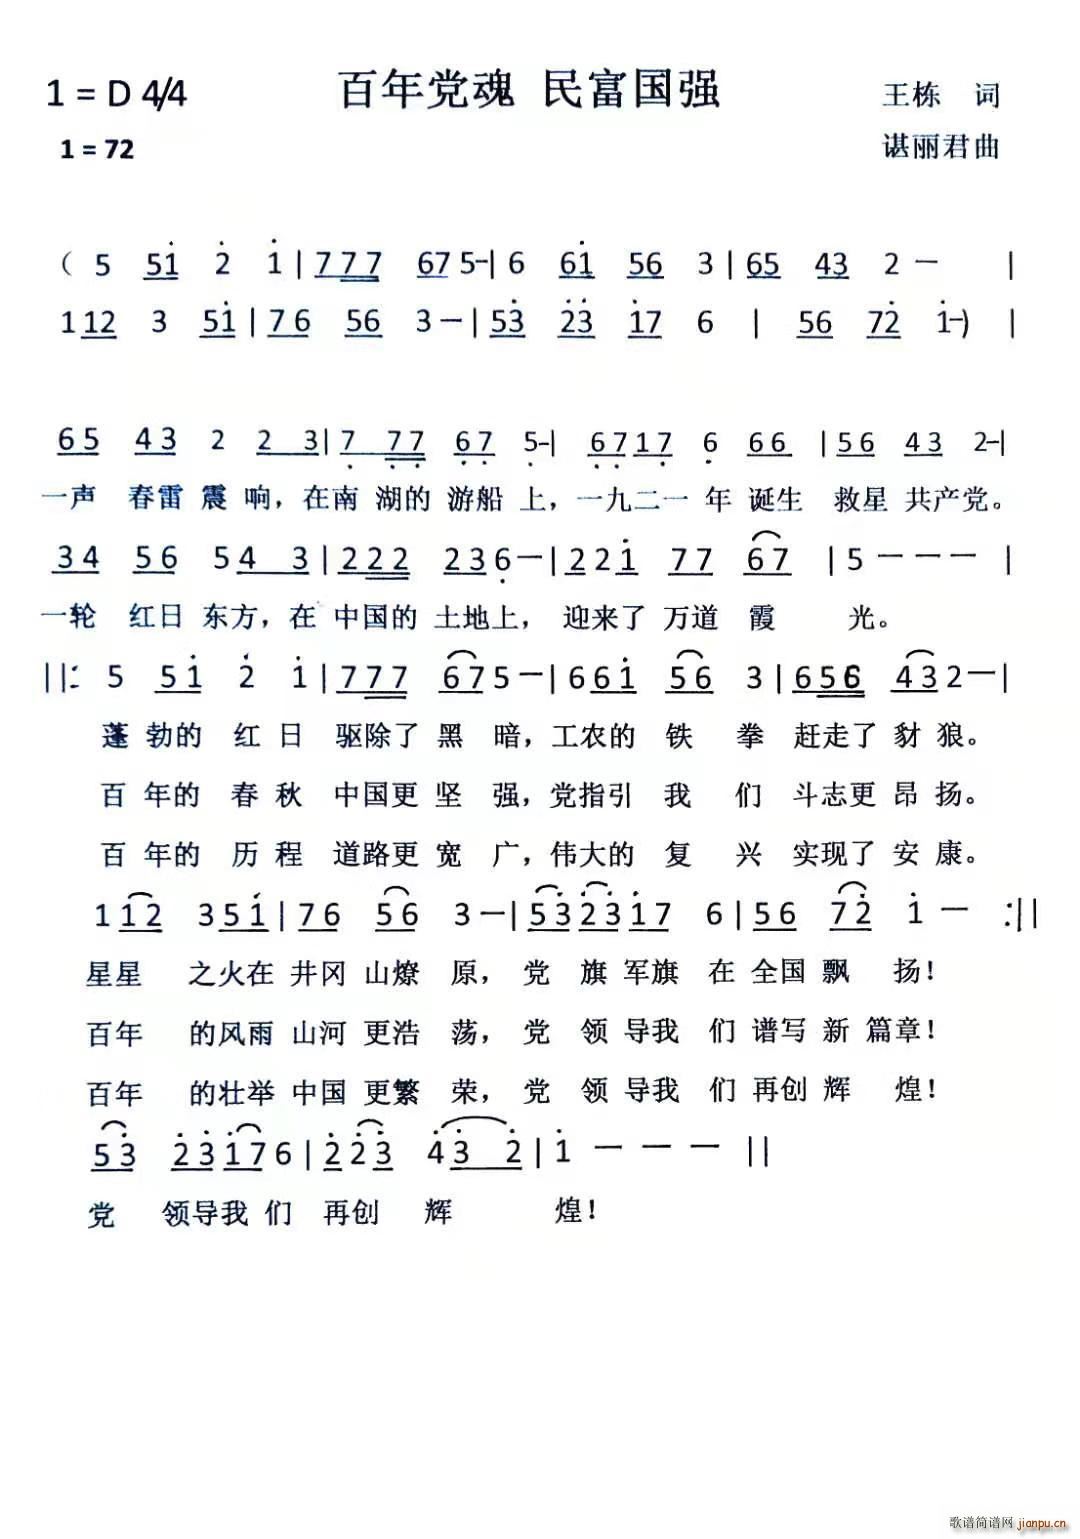 1 = D 4/4 百年党魂 民富国强 王栋 词
1 = 72 谌丽君曲
( 5 51 2 1 | 777 67 5- | 6 61 56 3 | 65 43 2 — |
1 12 3 51 | 76 56 3 — | 53 23 17 6 | 56 72 1—) |
65 43 2 2 3 | 7 77 67 5- | 6717 6 66 | 56 43 2- |
一声 春雷 震 响，在南 湖的 游船 上，一九二一 年 诞生 救星 共产党。
34 56 5 4 3 | 222 236 — | 22 1 77 67 | 5 — — — |
一轮 红日 东方，在 中国的 土地上，迎来了 万道 霞 光。
||: 5 51 2 1 | 777 675 — | 661 56 3 | 656 432 — |
蓬 勃的 红 日 驱除了 黑 暗，工农的 铁 拳 赶走了 豺 狼。
百 年的 春 秋 中国更 坚 强，党指引 我 们 斗志更 昂 扬。
百 年的 历 程 道路更 宽 广，伟大的 复 兴 实现了 安 康。
1 12 351 | 76 56 3 — | 532317 6 | 56 72 1 — :||
星星 之火在 井冈 山燎 原，党 旗 军旗 在 全国 飘 扬！
百年 的风雨 山河 更浩 荡，党 领 导我 们 谱写 新 篇章！
百年 的壮举 中国 更繁 荣，党 领 导我 们 再创 辉 煌！
53 23176 | 223 43 2 | 1 — — — ||
党 领导我 们 再创 辉 煌！
歌谱简谱网
jianpu.cn